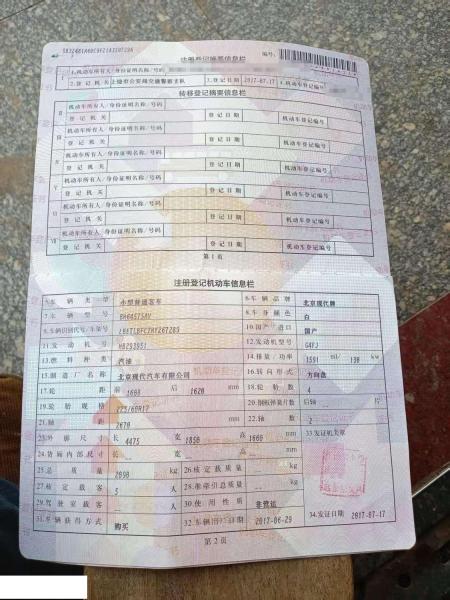 注册登记摘要信息栏
编号:
1.机动车所有人/身份证明名称/号码
2.登记机关 上饶市公安局交通警察支队 3.登记日期 2017-07-17 4.机动车登记编号
转移登记摘要信息栏
Ⅱ 机动车所有人/身份证明名称/号码
登记机关 登记日期 机动车登记编号
Ⅲ 机动车所有人/身份证明名称/号码
登记机关 登记日期 机动车登记编号
机动车所有人/身份证明名称/号码
登记机关 登记日期 机动车登记编号
Ⅴ 机动车所有人/身份证明名称/号码
登记机关 登记日期 机动车登记编号
机动车所有人/身份证明名称/号码
登记机关 登记日期 机动车登记编号
Ⅶ 机动车所有人/身份证明名称/号码
登记机关 登记日期 机动车登记编号
第1页
注册登记机动车信息栏
5.车辆类型 小型普通客车 6.车辆品牌 北京现代牌
7.车辆型号 8.车身颜色 白
9.车辆识别代号/车架号 10.国产/进口 国产
11.发动机号 12.发动机型号 G4FJ
13.燃料种类 汽油 14.排量/功率 1591 ml/ 130 kw
15.制造厂名称 北京现代汽车有限公司 16.转向形式 方向盘
17.轮距 前 1608 后 1620 mm 18.轮胎数 4
19.轮胎规格 225/60R17 20.钢板弹簧片数 后轴 -- 片
21.轴距 2670 mm 22.轴数 2
23.外廓尺寸 长 4475 宽 1850 高 1660 mm 33.发证机关章
24.货厢内部尺寸 长 -- 宽 -- 高 -- mm
25.总质量 2090 kg 26.核定载质量 -- kg
27.核定载客 5 人 28.准牵引总质量 -- kg
29.驾驶室载客 -- 人 30.使用性质 非营运
31.车辆获得方式 购买 32.车辆出厂日期 2017-06-29 34.发证日期 2017-07-17
第2页